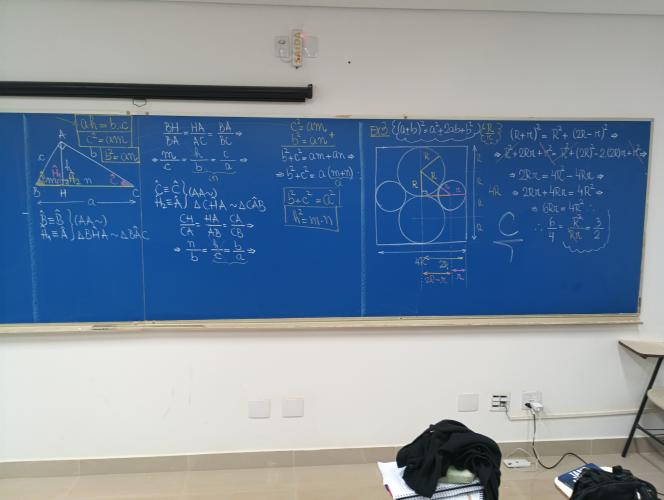 SAÍDA
ah = b.c
c² = am
b² = an
A
c
b
h
m
n
B
H
C
a
B̂ ≡ B̂
Ĥ₁ ≡ Â } (AA~)
ΔBĤA ~ ΔBÂC
BH/BA = HA/AC = BA/BC ⇒
m/c = h/b = c/a
Ĉ ≡ Ĉ
Ĥ₂ ≡ Â } (AA~)
ΔCĤA ~ ΔCÂB
CH/CA = HA/AB = CA/CB ⇒
⇒ n/b = h/c = b/a
c² = am
b² = an +
b² + c² = am + an ⇒
⇒ b² + c² = a(m+n)
a
b² + c² = a²
h² = m·n
(a+b)² = a² + 2ab + b²
R
R
R
r
4R
R
R
R
R
4R
2R
2R-r
r
(R+r)² = R² + (2R-r)² ⇒
⇒ R² + 2Rr + r² = R² + (2R)² - 2.(2R)r + r² ⇒
⇒ 2Rr = 4R² - 4Rr ⇒
⇒ 2Rr + 4Rr = 4R² ⇒
⇒ 6Rr = 4R² ∴
∴ 6/4 = R²/Rr = 3/2
C